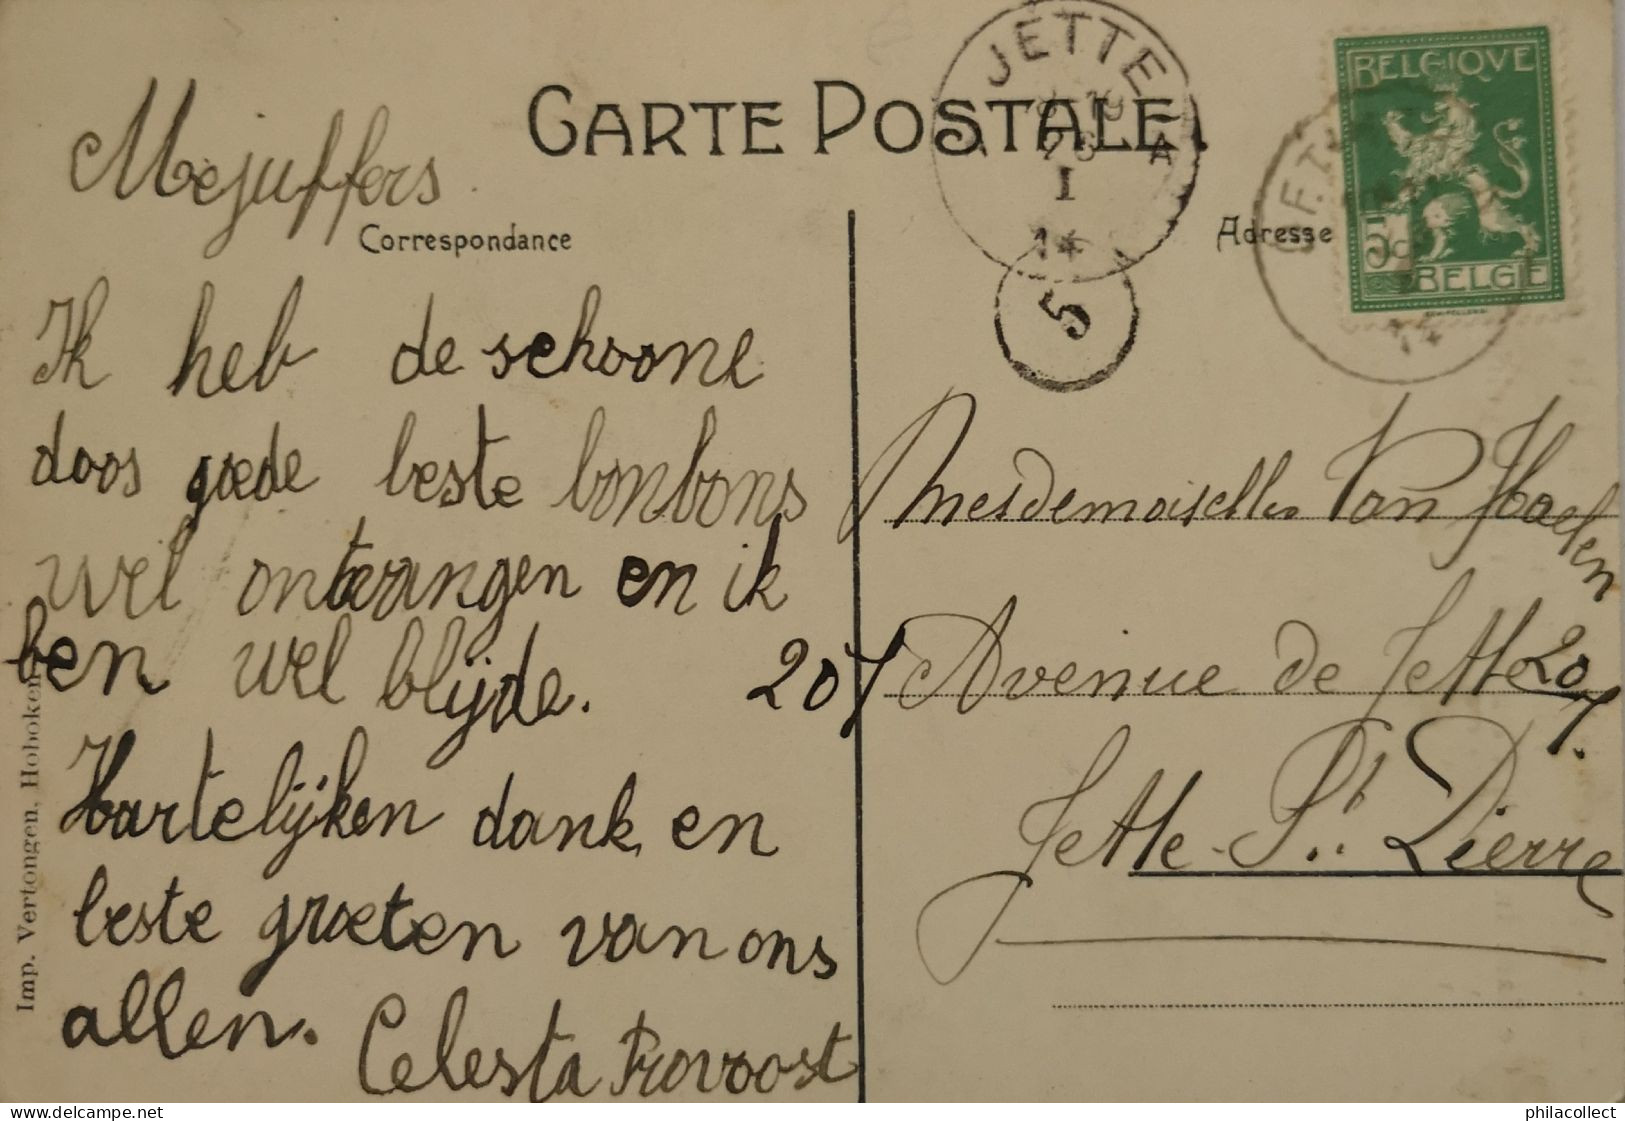 CARTE POSTALE
Correspondance
Adresse
Mejuffers
Ik heb de schoone
doos goede beste bonbons
wel ontvangen en ik
ben wel blijde.
Hartelijken dank en
beste groeten van ons
allen.
Celesta Provoost
Imp. Vertongen, Hoboken
JETTE
I
14
5
BELGIQVE
5c
BELGIE
14
Mesdemoiselles Van Haelen
207 Avenue de Jette 207.
Jette-St. Pierre
philacollect